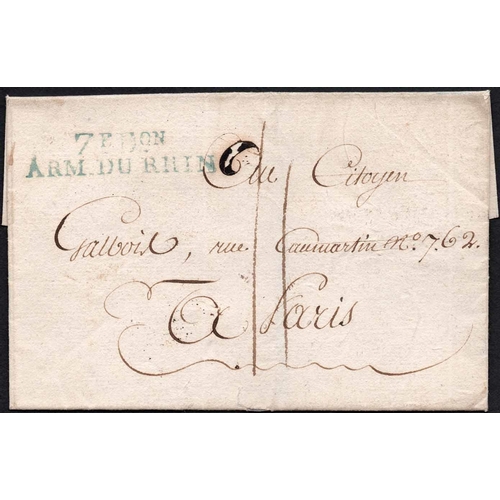 7E DON
ARM. DU RHIN
Au Citoyen
Galbois, rue Caumartin No. 762.
A Paris